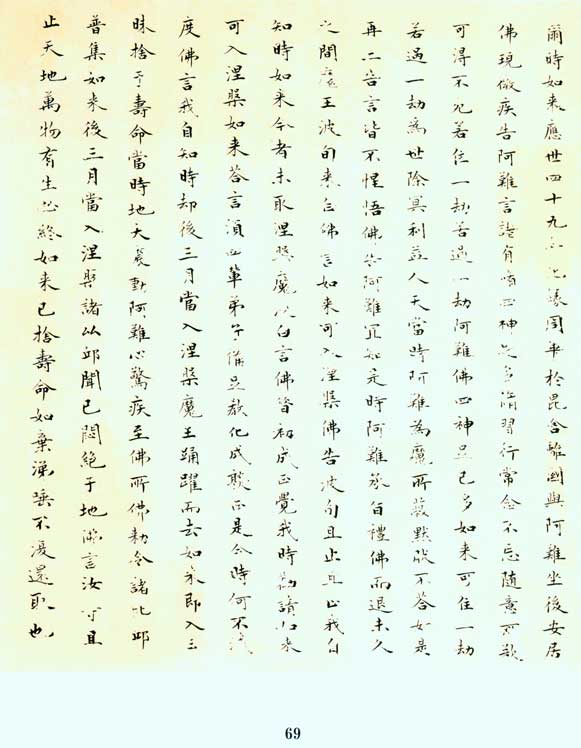 爾時如來應世四十九年化緣周畢於毘舍離國與阿難坐後安居
佛現微疾告阿難言諸有脩四神足多脩習行常念不忘隨意所欲
可得不死若住一劫若過一劫阿難佛四神足已多如來可住一劫
若過一劫為世除冥利益人天當時阿難為魔所蔽默然不答如是
再三告言皆不惺悟佛告阿難宜知是時阿難承旨禮佛而退未久
之間魔王波旬來白佛言如來可入涅槃佛告波旬且止且止我自
知時如來今者未取涅槃魔又白言佛昔初成正覺我時勸請如來
可入涅槃如來答言須四輩弟子備足教化成就正是今時何不滅
度佛言我自知時却後三月當入涅槃魔王踊躍而去如來即入三
昧捨于壽命當時地大震動阿難心驚疾至佛所佛勅令諸比邱
普集如來後三月當入涅槃諸比邱聞已悶絕于地佛言汝等且
止天地萬物有生必終如來已捨壽命如棄涕唾不復還取也
69